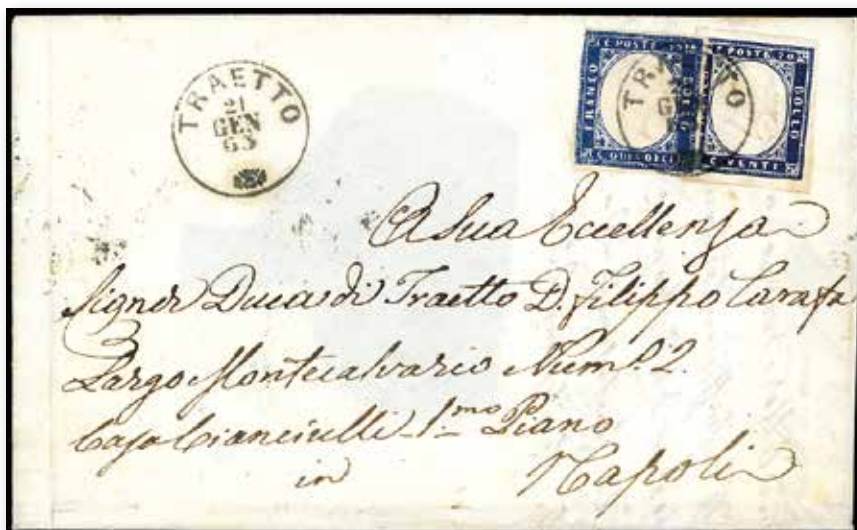 TRAETTO
21
GEN
63
C. POSTE 15
FRANCO
BOLLO
C. QUINDICI
C. POSTE 20
BOLLO
C. VENTI
TRAETTO
A Sua Eccellenza
Signor Duca di Traetto D. Filippo Carafa
Largo Montecalvario Num.º 2.
Casa Cianciulli 1.mo Piano
in Napoli